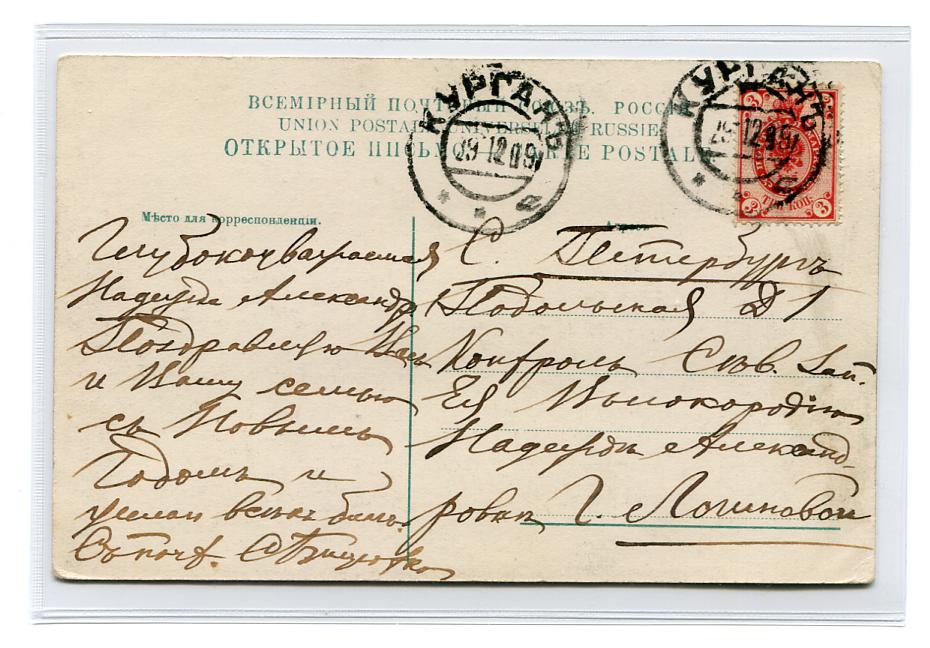 ВСЕМІРНЫЙ ПОЧТОВЫЙ СОЮЗЪ. РОССІЯ
UNION POSTALE UNIVERSELLE. RUSSIE
ОТКРЫТОЕ ПИСЬМО. CARTE POSTALE
КУРГАНЪ
29 12 09
КУРГАНЪ
29 12 09
ТРИ КОП.
3 3
Мѣсто для корреспонденціи.
Адресъ.
Глубокоуважаемая
Надежда Александр.
Поздравляю Васъ
и Вашу семью
съ Новымъ
Годомъ и
желаю всѣхъ благ.
Съ почт.
С. Петербургъ
Подольская Д 1
Контроль Сѣв. Зап.
Ея Высокородію
Надеждѣ Александ-
ровнѣ Г. Логиновой